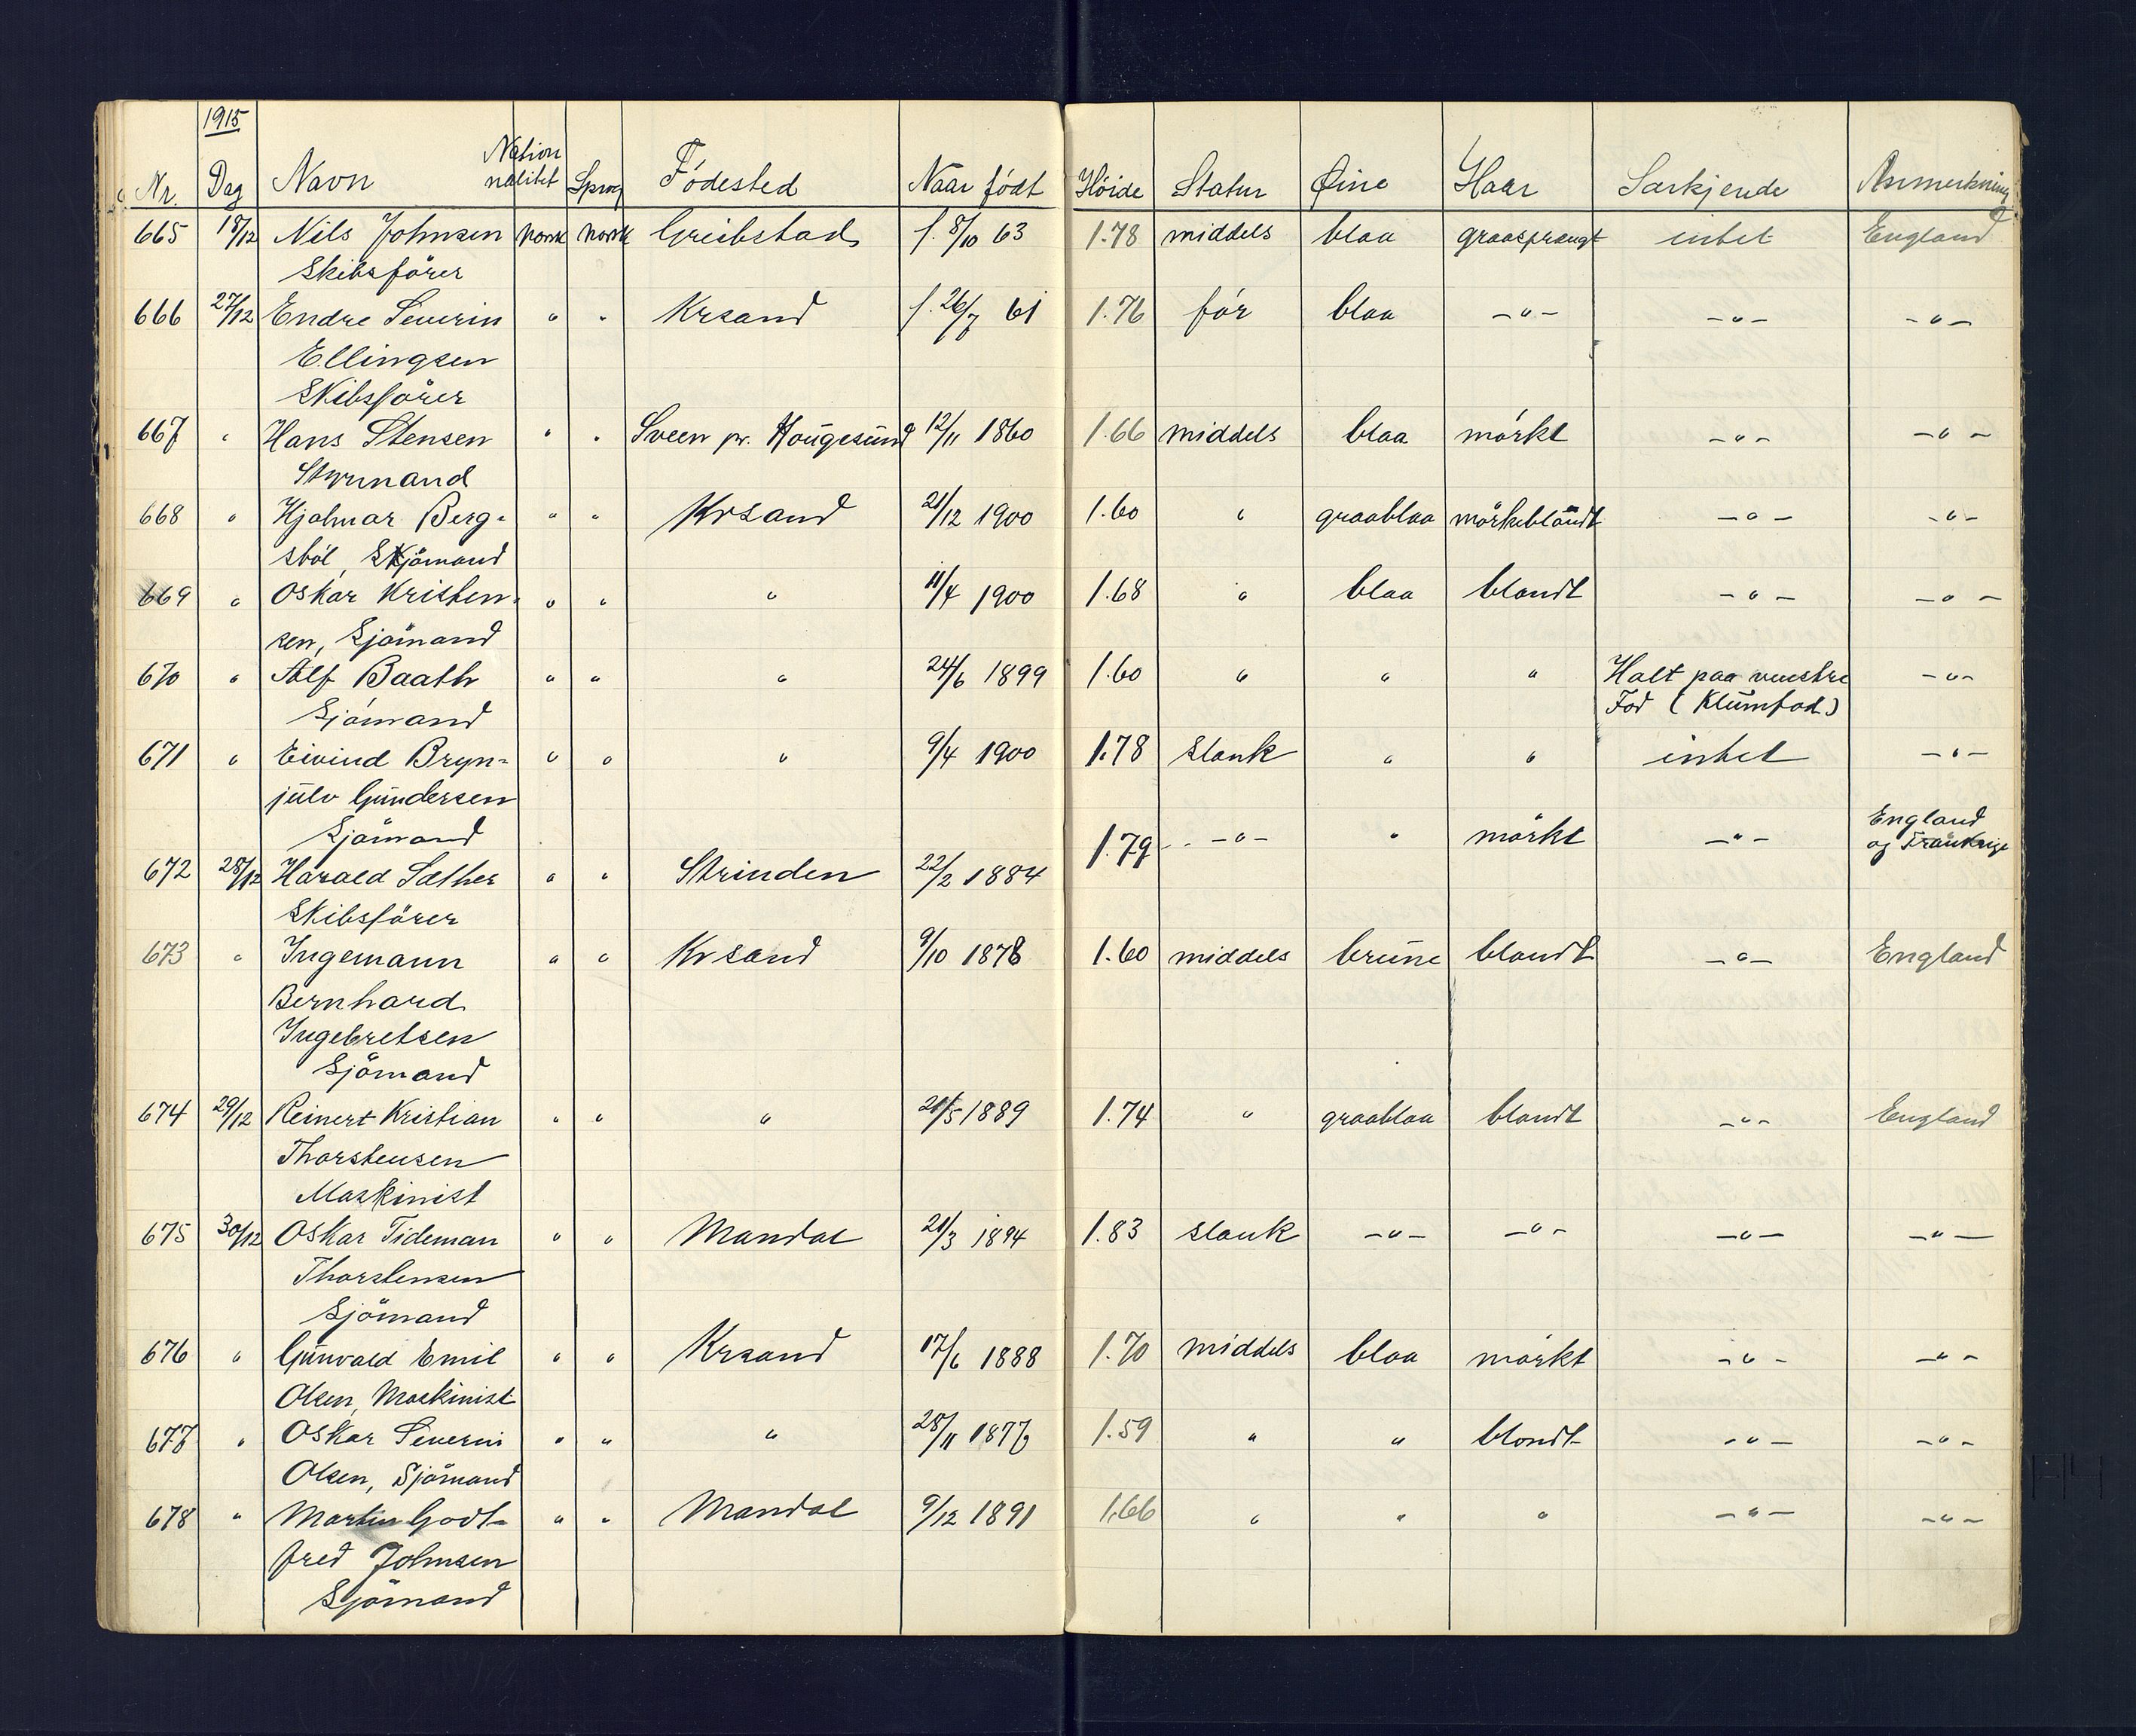 1915
Nr. Dag Navn Nation nalitet Sprog Födested Naar født Höide Statur Øine Haar Særkjende Anmerkning
665 18/12 Nils Johnsen norsk norsk Greibstad f. 8/10 63 1.78 middels blaa graasprængt intet England
Skibsförer
666 27/12 Endre Severin " " Krsand f. 26/7 61 1.76 för blaa -"- -"- -"-
Ellingsen
Skibsförer
667 " Hans Stensen " " Sveen pr. Hougesund 12/11 1860 1.66 middels blaa mörkt -"- -"-
Styrmand
668 " Hjalmar Berg- " " Krsand 21/12 1900 1.60 " graablaa mörkeblondt -"- -"-
sböl, Sjömand
669 " Oskar Kristen- " " " 11/4 1900 1.68 " blaa blondt -"- -"-
sen, Sjömand
670 " Alf Baath " " " 24/6 1899 1.60 " " " Halt paa venstre -"-
Sjömand Fod (Klumfod)
671 " Eivind Bryn- " " " 9/4 1900 1.78 slank " " intet -"-
julv Gundersen
Sjömand
672 28/12 Harald Sæther " " Strinden 22/2 1884 1.79 -"- " mörkt -"- England og Frankrige
Skibsförer
673 " Ingemann " " Krsand 9/10 1878 1.60 middels brune blondt -"- England
Bernhard
Ingebretsen
Sjömand
674 29/12 Reinert Kristian " " " 21/5 1889 1.74 " graablaa blondt -"- England
Thorstensen
Maskinist
675 30/12 Oskar Tideman " " Mandal 21/3 1894 1.83 slank -"- -"- -"- -"-
Thorstensen
Sjömand
676 " Gunvald Emil " " Krsand 17/6 1888 1.70 middels blaa mörkt -"- -"-
Olsen, Maskinist
677 " Oskar Severin " " " 28/11 1877 1.59 " " blondt -"- -"-
Olsen, Sjömand
678 " Martin Godt- " " Mandal 9/12 1891 1.66 " " " -"- -"-
fred Johnsen
Sjömand